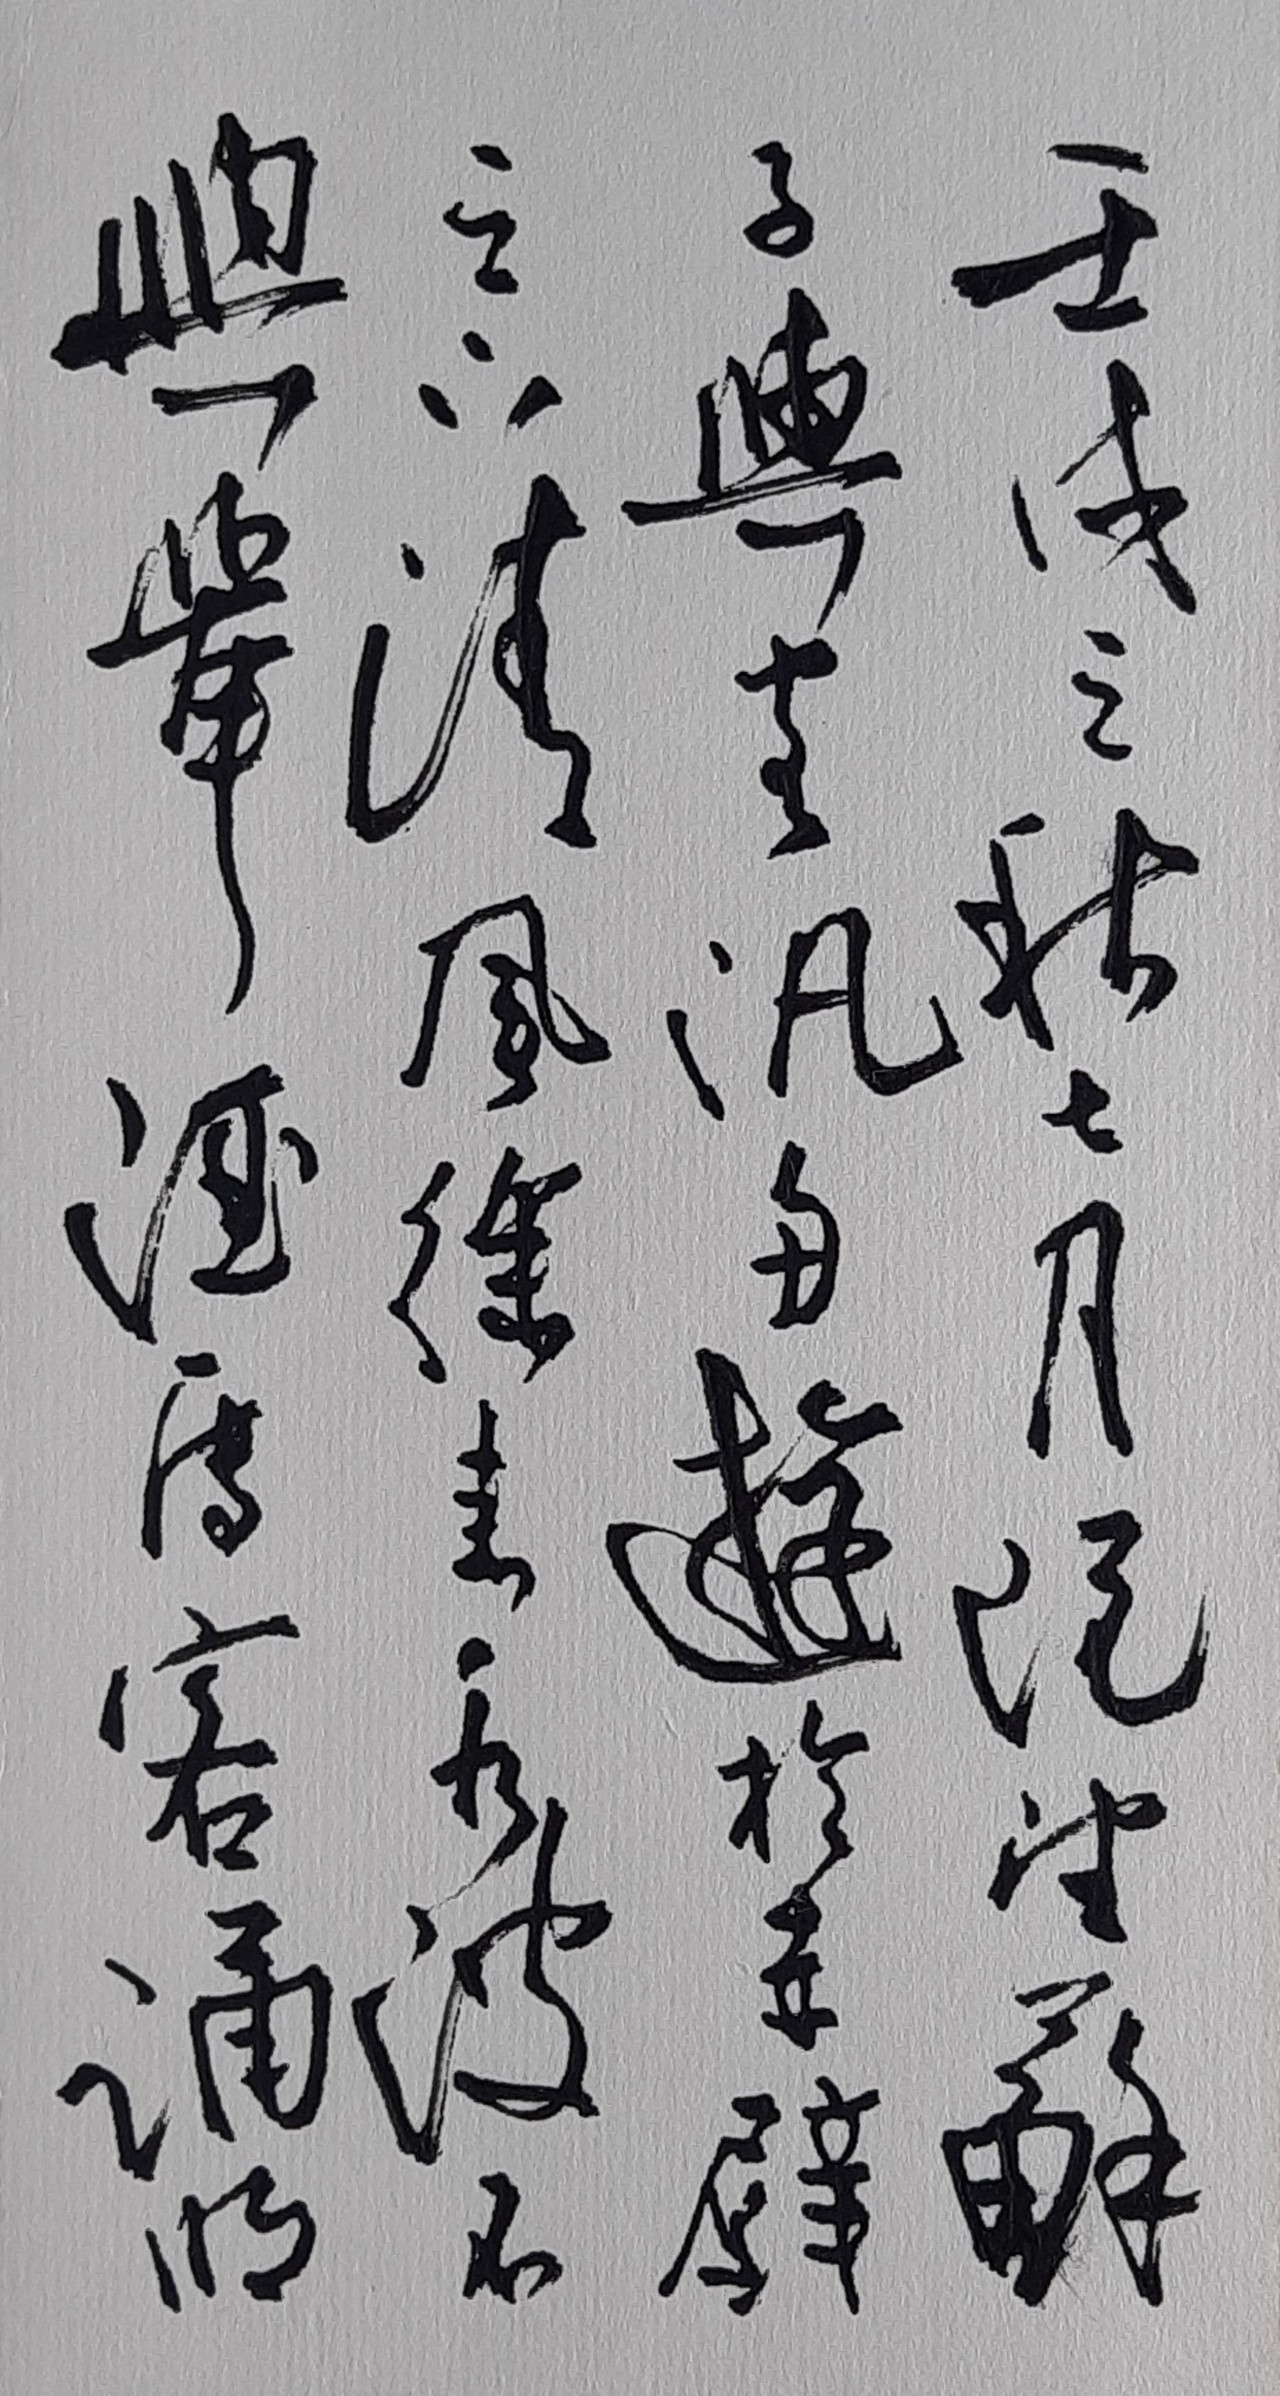 壬戌之秋七月既望蘇
子與客汎舟遊於赤壁
之下清風徐来水波不
興舉酒屬客誦明